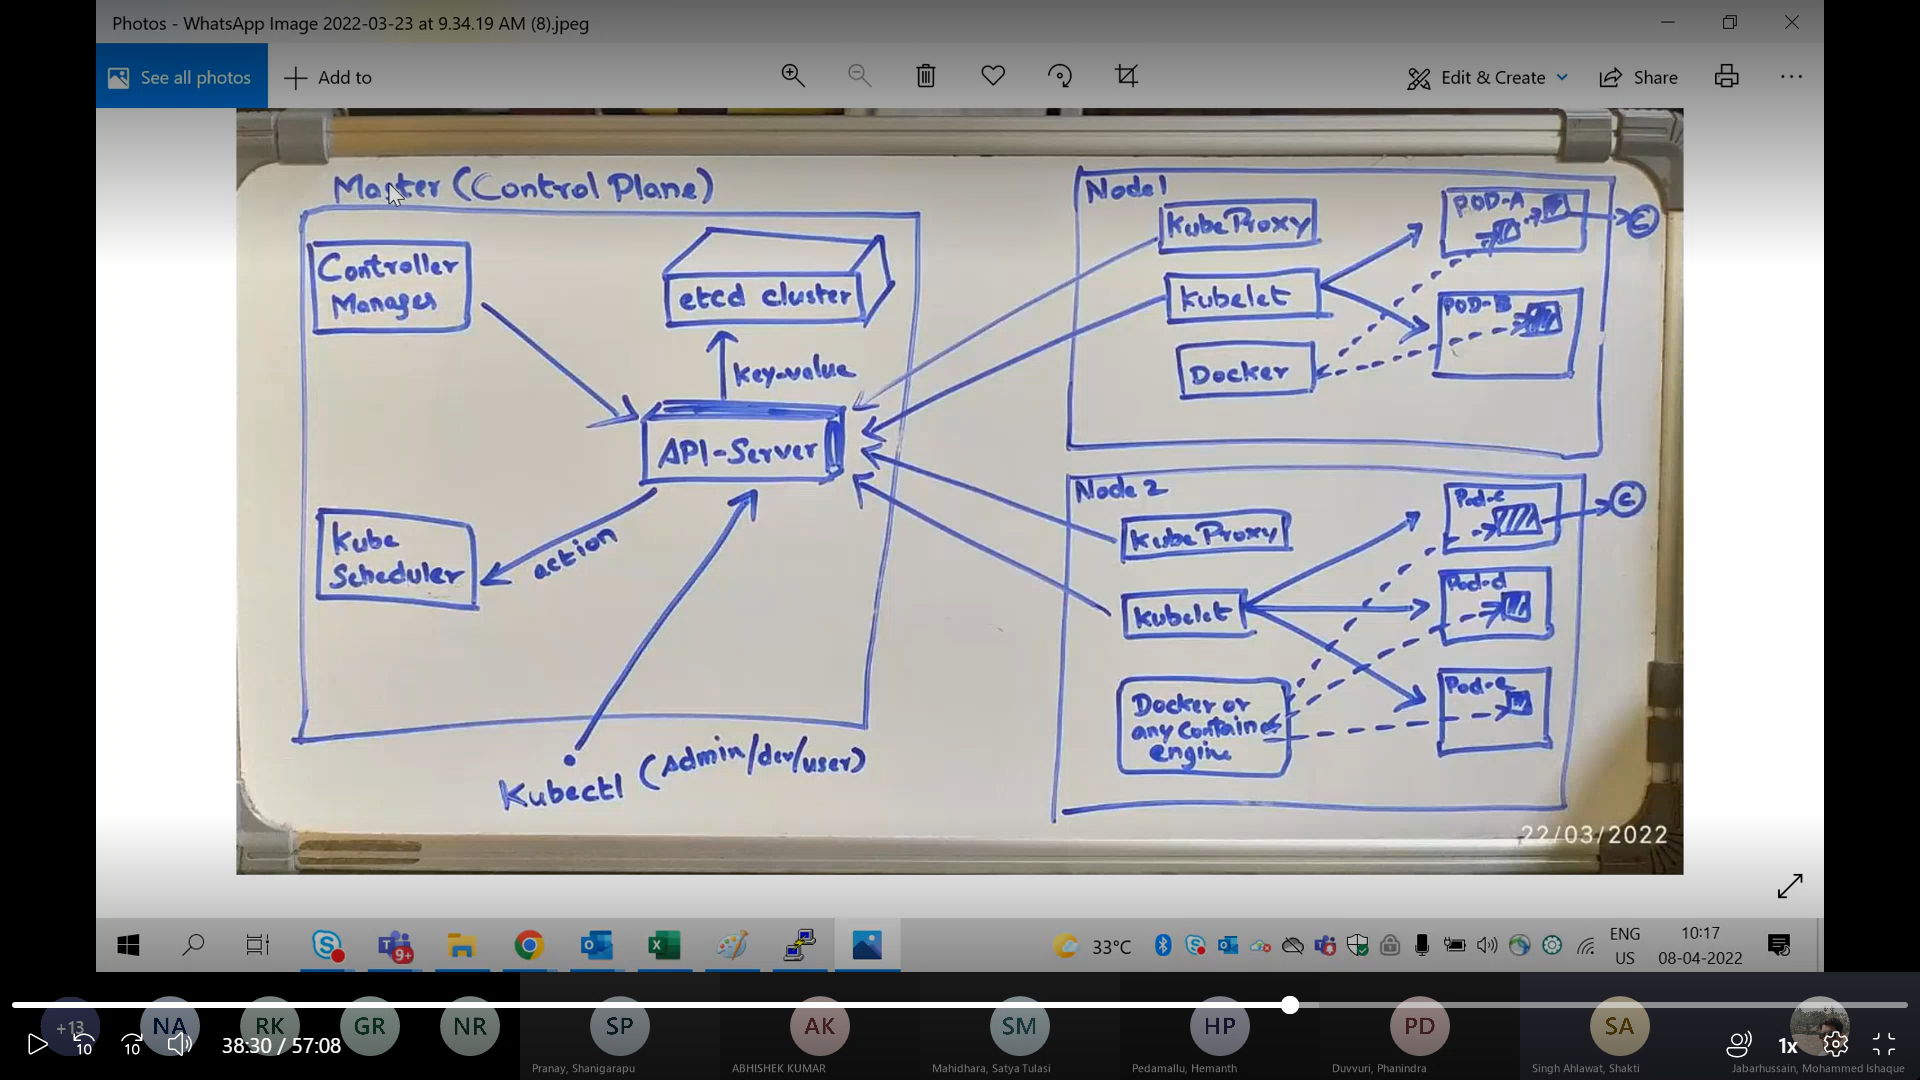 Photos - WhatsApp Image 2022-03-23 at 9.34.19 AM (8).jpeg
See all photos
Add to
Edit & Create
Share
Master (Control Plane)
Controller
Manager
etcd cluster
key-value
API-Server
Kube
Scheduler
action
Kubectl (Admin/dev/user)
Node1
KubeProxy
Kubelet
Docker
POD-A
POD-B
C
Node 2
KubeProxy
Kubelet
Docker or
any Container
engine
Pod-c
Pod-d
Pod-e
C
22/03/2022
9+
33°C
ENG
US
10:17
08-04-2022
+13
NA
RK
GR
NR
SP
AK
SM
HP
PD
SA
10
10
38:30 / 57:08
1x
Pranay, Shanigarapu
ABHISHEK KUMAR
Mahidhara, Satya Tulasi
Pedamallu, Hemanth
Duvvuri, Phanindra
Singh Ahlawat, Shakti
Jabarhussain, Mohammed Ishaque